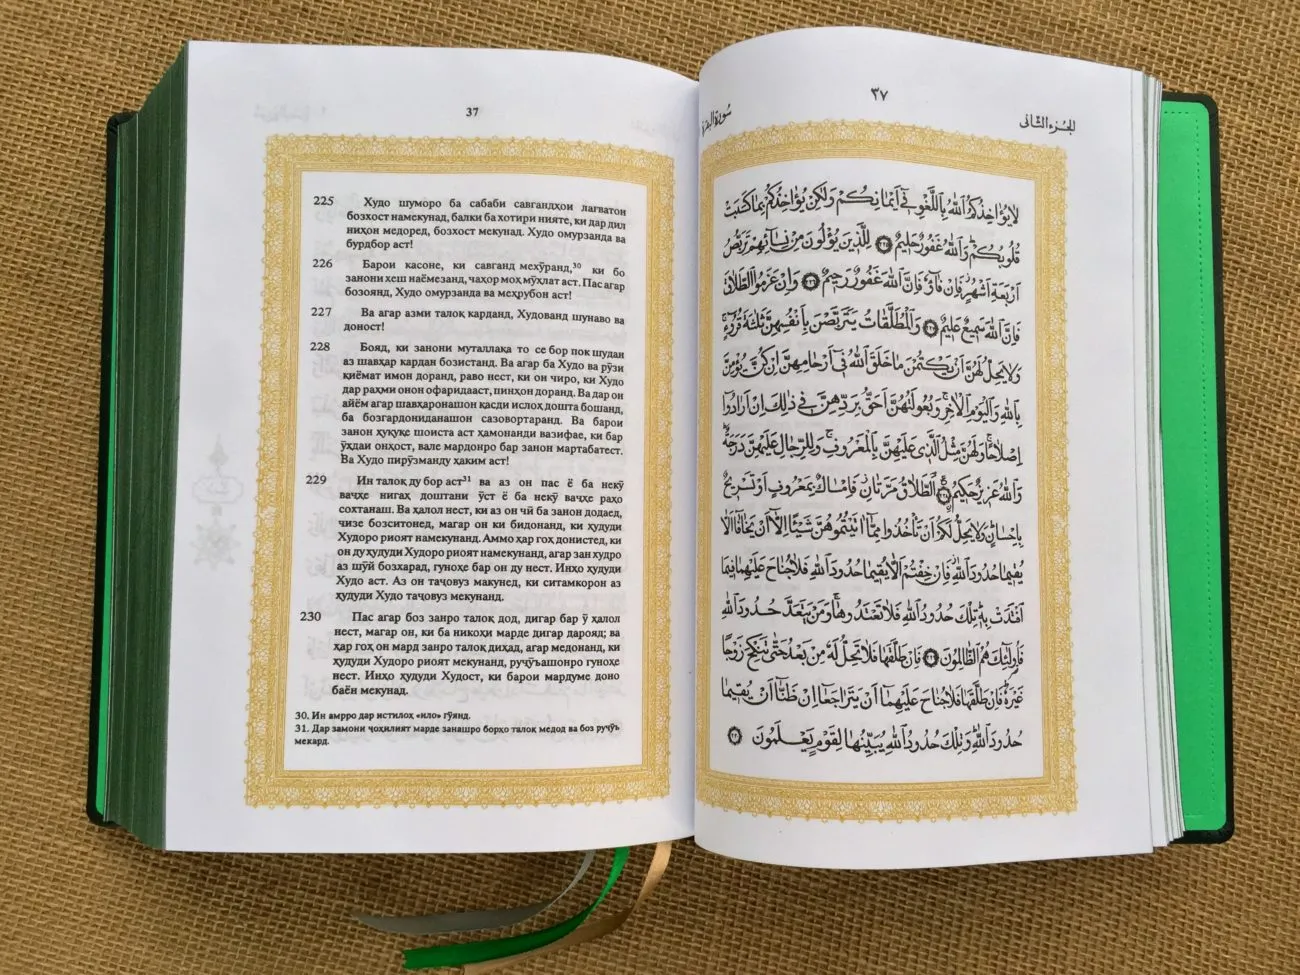 37
225 Худо шуморо ба сабаби савгандҳои лағватон
бозхост намекунад, балки ба хотири нияте, ки дар дил
ниҳон медоред, бозхост мекунад. Худо омурзанда ва
бурдбор аст!
226 Барои касоне, ки савганд мехӯранд,³⁰ ки бо
занони хеш наёмезанд, чаҳор моҳ мӯҳлат аст. Пас агар
бозоянд, Худо омурзанда ва меҳрубон аст!
227 Ва агар азми талоқ карданд, Худованд шунаво ва
доност!
228 Бояд, ки занони муталлақа то се бор пок шудан
аз шавҳар кардан бозистанд. Ва агар ба Худо ва рӯзи
қиёмат имон доранд, раво нест, ки он чиро, ки Худо
дар раҳми онон офаридааст, пинҳон доранд. Ва дар он
айём агар шавҳаронашон қасди ислоҳ дошта бошанд,
ба бозгардониданашон сазовортаранд. Ва барои
занон ҳуқуқе шоиста аст ҳамонанди вазифае, ки бар
ӯҳдаи онҳост, вале мардонро бар занон мартабатест.
Ва Худо пирӯзманду ҳаким аст!
229 Ин талоқ ду бор аст³¹ ва аз он пас ё ба некӯ
ваҷҳе нигаҳ доштани ӯст ё ба некӯ ваҷҳе раҳо
сохтанаш. Ва ҳалол нест, ки аз он чӣ ба занон додаед,
чизе бозситонед, магар он ки бидонанд, ки ҳудуди
Худоро риоят намекунанд. Аммо ҳар гоҳ донистед, ки
он ду ҳудуди Худоро риоят намекунанд, агар зан худро
аз шӯй бозхарад, гуноҳе бар он ду нест. Инҳо ҳудуди
Худо аст. Аз он таҷовуз макунед, ки ситамкорон аз
ҳудуди Худо таҷовуз мекунанд.
230 Пас агар боз занро талоқ дод, дигар бар ӯ ҳалол
нест, магар он, ки ба никоҳи марде дигар дарояд; ва
ҳар гоҳ он мард занро талоқ диҳад, агар медонанд, ки
ҳудуди Худоро риоят мекунанд, руҷӯъашонро гуноҳе
нест. Инҳо ҳудуди Худост, ки барои мардуме доно
баён мекунад.
30. Ин амрро дар истилоҳ «ило» гӯянд.
31. Дар замони ҷоҳилият марде занашро борҳо талоқ медод ва боз руҷӯъ
мекард.
٣٧
الجزء الثانى
سورة البقرة
لَا يُؤَاخِذُكُمُ اللّٰهُ بِاللَّغْوِ فٖٓي اَيْمَانِكُمْ وَلٰكِنْ يُؤَاخِذُكُمْ بِمَا كَسَبَتْ
قُلُوبُكُمْ وَاللّٰهُ غَفُورٌ حَلٖيمٌ ٢٢٥ لِلَّذٖينَ يُؤْلُونَ مِنْ نِسَٓائِهِمْ تَرَبُّصُ
اَرْبَعَةِ اَشْهُرٍ فَاِنْ فَٓاؤُ فَاِنَّ اللّٰهَ غَفُورٌ رَحٖيمٌ ٢٢٦ وَاِنْ عَزَمُوا الطَّلَاقَ
فَاِنَّ اللّٰهَ سَمٖيعٌ عَلٖيمٌ ٢٢٧ وَالْمُطَلَّقَاتُ يَتَرَبَّصْنَ بِاَنْفُسِهِنَّ ثَلٰثَةَ قُرُٓوءٍ
وَلَا يَحِلُّ لَهُنَّ اَنْ يَكْتُمْنَ مَا خَلَقَ اللّٰهُ فٖٓي اَرْحَامِهِنَّ اِنْ كُنَّ يُؤْمِنَّ
بِاللّٰهِ وَالْيَوْمِ الْاٰخِرِ وَبُعُولَتُهُنَّ اَحَقُّ بِرَدِّهِنَّ فٖي ذٰلِكَ اِنْ اَرَادُٓوا
اِصْلَاحًا وَلَهُنَّ مِثْلُ الَّذٖي عَلَيْهِنَّ بِالْمَعْرُوفِ وَلِلرِّجَالِ عَلَيْهِنَّ دَرَجَةٌ
وَاللّٰهُ عَزٖيزٌ حَكٖيمٌ ٢٢٨ اَلطَّلَاقُ مَرَّتَانِ فَاِمْسَاكٌ بِمَعْرُوفٍ اَوْ تَسْرٖيحٌ
بِاِحْسَانٍ وَلَا يَحِلُّ لَكُمْ اَنْ تَأْخُذُوا مِمَّٓا اٰتَيْتُمُوهُنَّ شَيْـًٔا اِلَّٓا اَنْ يَخَافَٓا اَلَّا
يُقٖيمَا حُدُودَ اللّٰهِ فَاِنْ خِفْتُمْ اَلَّا يُقٖيمَا حُدُودَ اللّٰهِ فَلَا جُنَاحَ عَلَيْهِمَا فٖيمَا
افْتَدَتْ بِهٖ تِلْكَ حُدُودُ اللّٰهِ فَلَا تَعْتَدُوهَا وَمَنْ يَتَعَدَّ حُدُودَ اللّٰهِ
فَاُولٰٓئِكَ هُمُ الظَّالِمُونَ ٢٢٩ فَاِنْ طَلَّقَهَا فَلَا تَحِلُّ لَهُ مِنْ بَعْدُ حَتّٰى تَنْكِحَ زَوْجًا
غَيْرَهُ فَاِنْ طَلَّقَهَا فَلَا جُنَاحَ عَلَيْهِمَٓا اَنْ يَتَرَاجَعَٓا اِنْ ظَنَّٓا اَنْ يُقٖيمَا
حُدُودَ اللّٰهِ وَتِلْكَ حُدُودُ اللّٰهِ يُبَيِّنُهَا لِقَوْمٍ يَعْلَمُونَ ٢٣٠